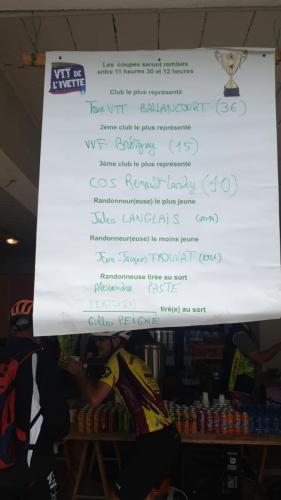 VTT DE
L'YVETTE
Les coupes seront remises
entre 11 heures 30 et 12 heures
Club le plus représenté
Team VTT BALLANCOURT (36)
2ème club le plus représenté
VVF Brétigny (15)
3ème club le plus représenté
COS Renault Lardy (10)
Randonneur(euse) le plus jeune
Jules LANGLAIS
Randonneur(euse) le moins jeune
Jean Jacques
Randonneuse tirée au sort
Alexandra PASTE
tiré(e) au sort
Gilles PEIGNÉ